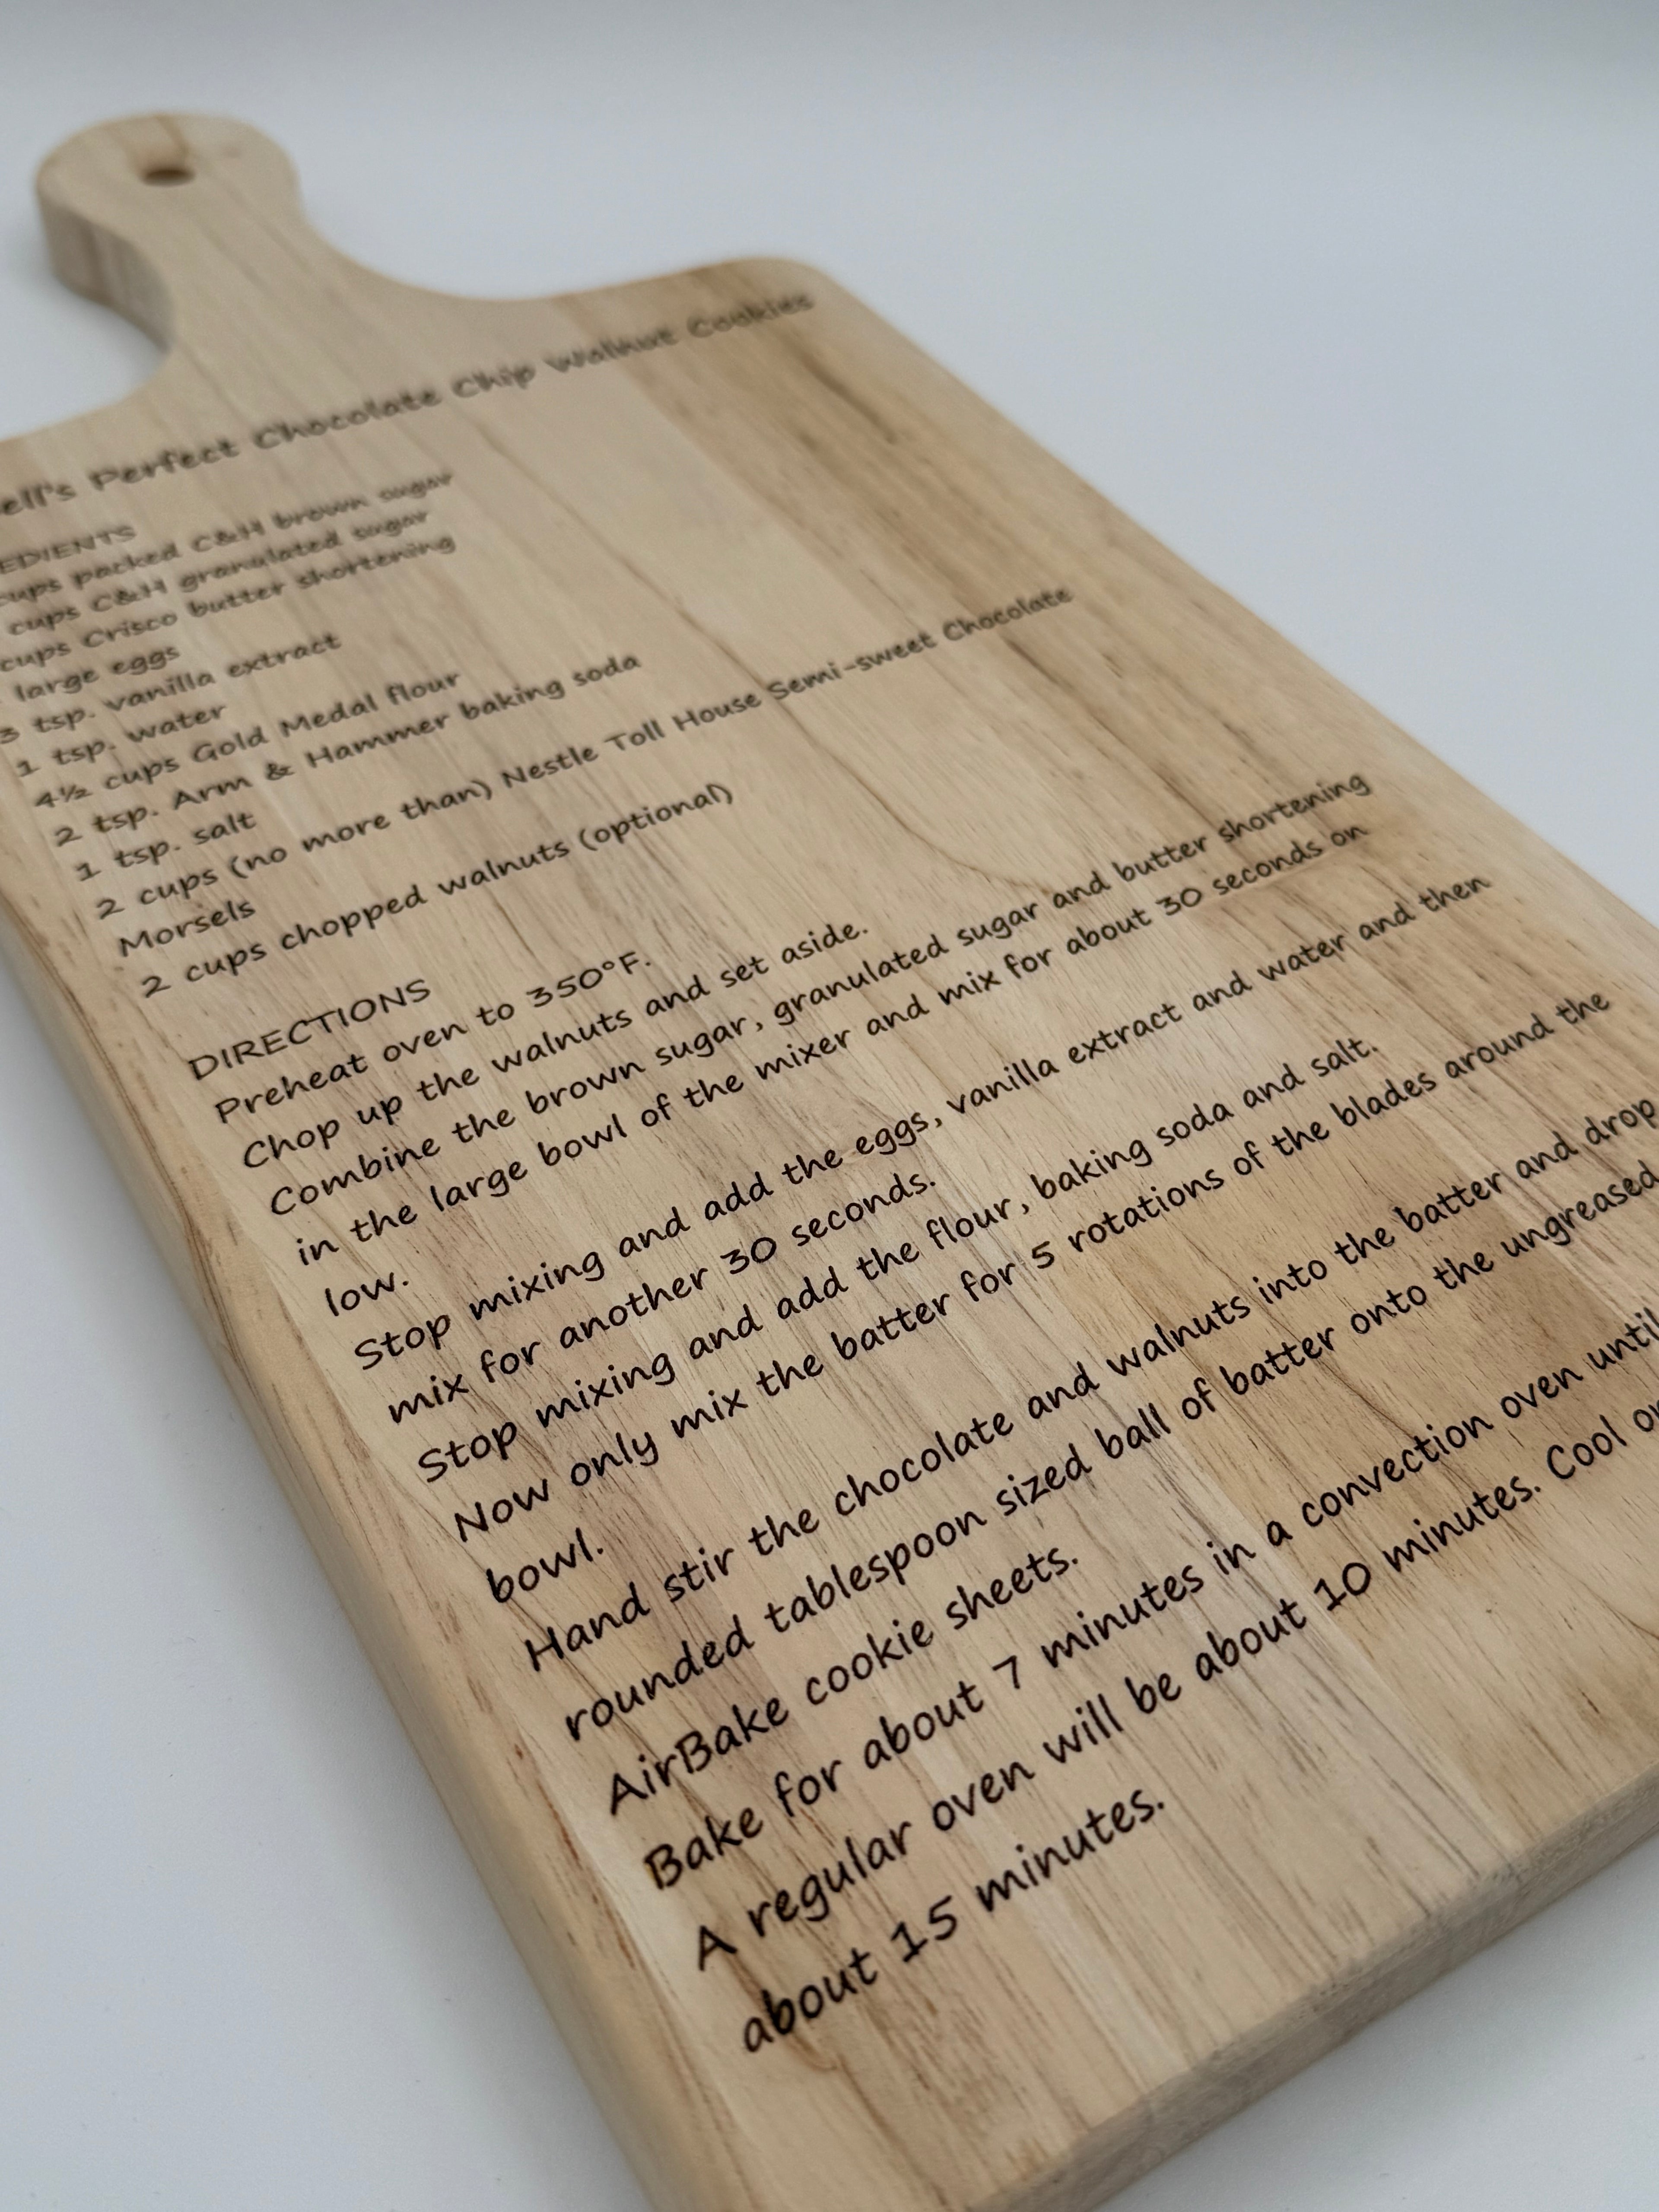 ell's Perfect Chocolate Chip Walnut Cookies
EDIENTS
cups packed C&H brown sugar
cups C&H granulated sugar
cups Crisco butter shortening
large eggs
3 tsp. vanilla extract
1 tsp. water
4½ cups Gold Medal flour
2 tsp. Arm & Hammer baking soda
1 tsp. salt
2 cups (no more than) Nestle Toll House Semi-sweet Chocolate
Morsels
2 cups chopped walnuts (optional)
DIRECTIONS
Preheat oven to 350°F.
Chop up the walnuts and set aside.
Combine the brown sugar, granulated sugar and butter shortening
in the large bowl of the mixer and mix for about 30 seconds on
low.
Stop mixing and add the eggs, vanilla extract and water and then
mix for another 30 seconds.
Stop mixing and add the flour, baking soda and salt.
Now only mix the batter for 5 rotations of the blades around the
bowl.
Hand stir the chocolate and walnuts into the batter and drop
rounded tablespoon sized ball of batter onto the ungreased
AirBake cookie sheets.
Bake for about 7 minutes in a convection oven until
A regular oven will be about 10 minutes. Cool
about 15 minutes.